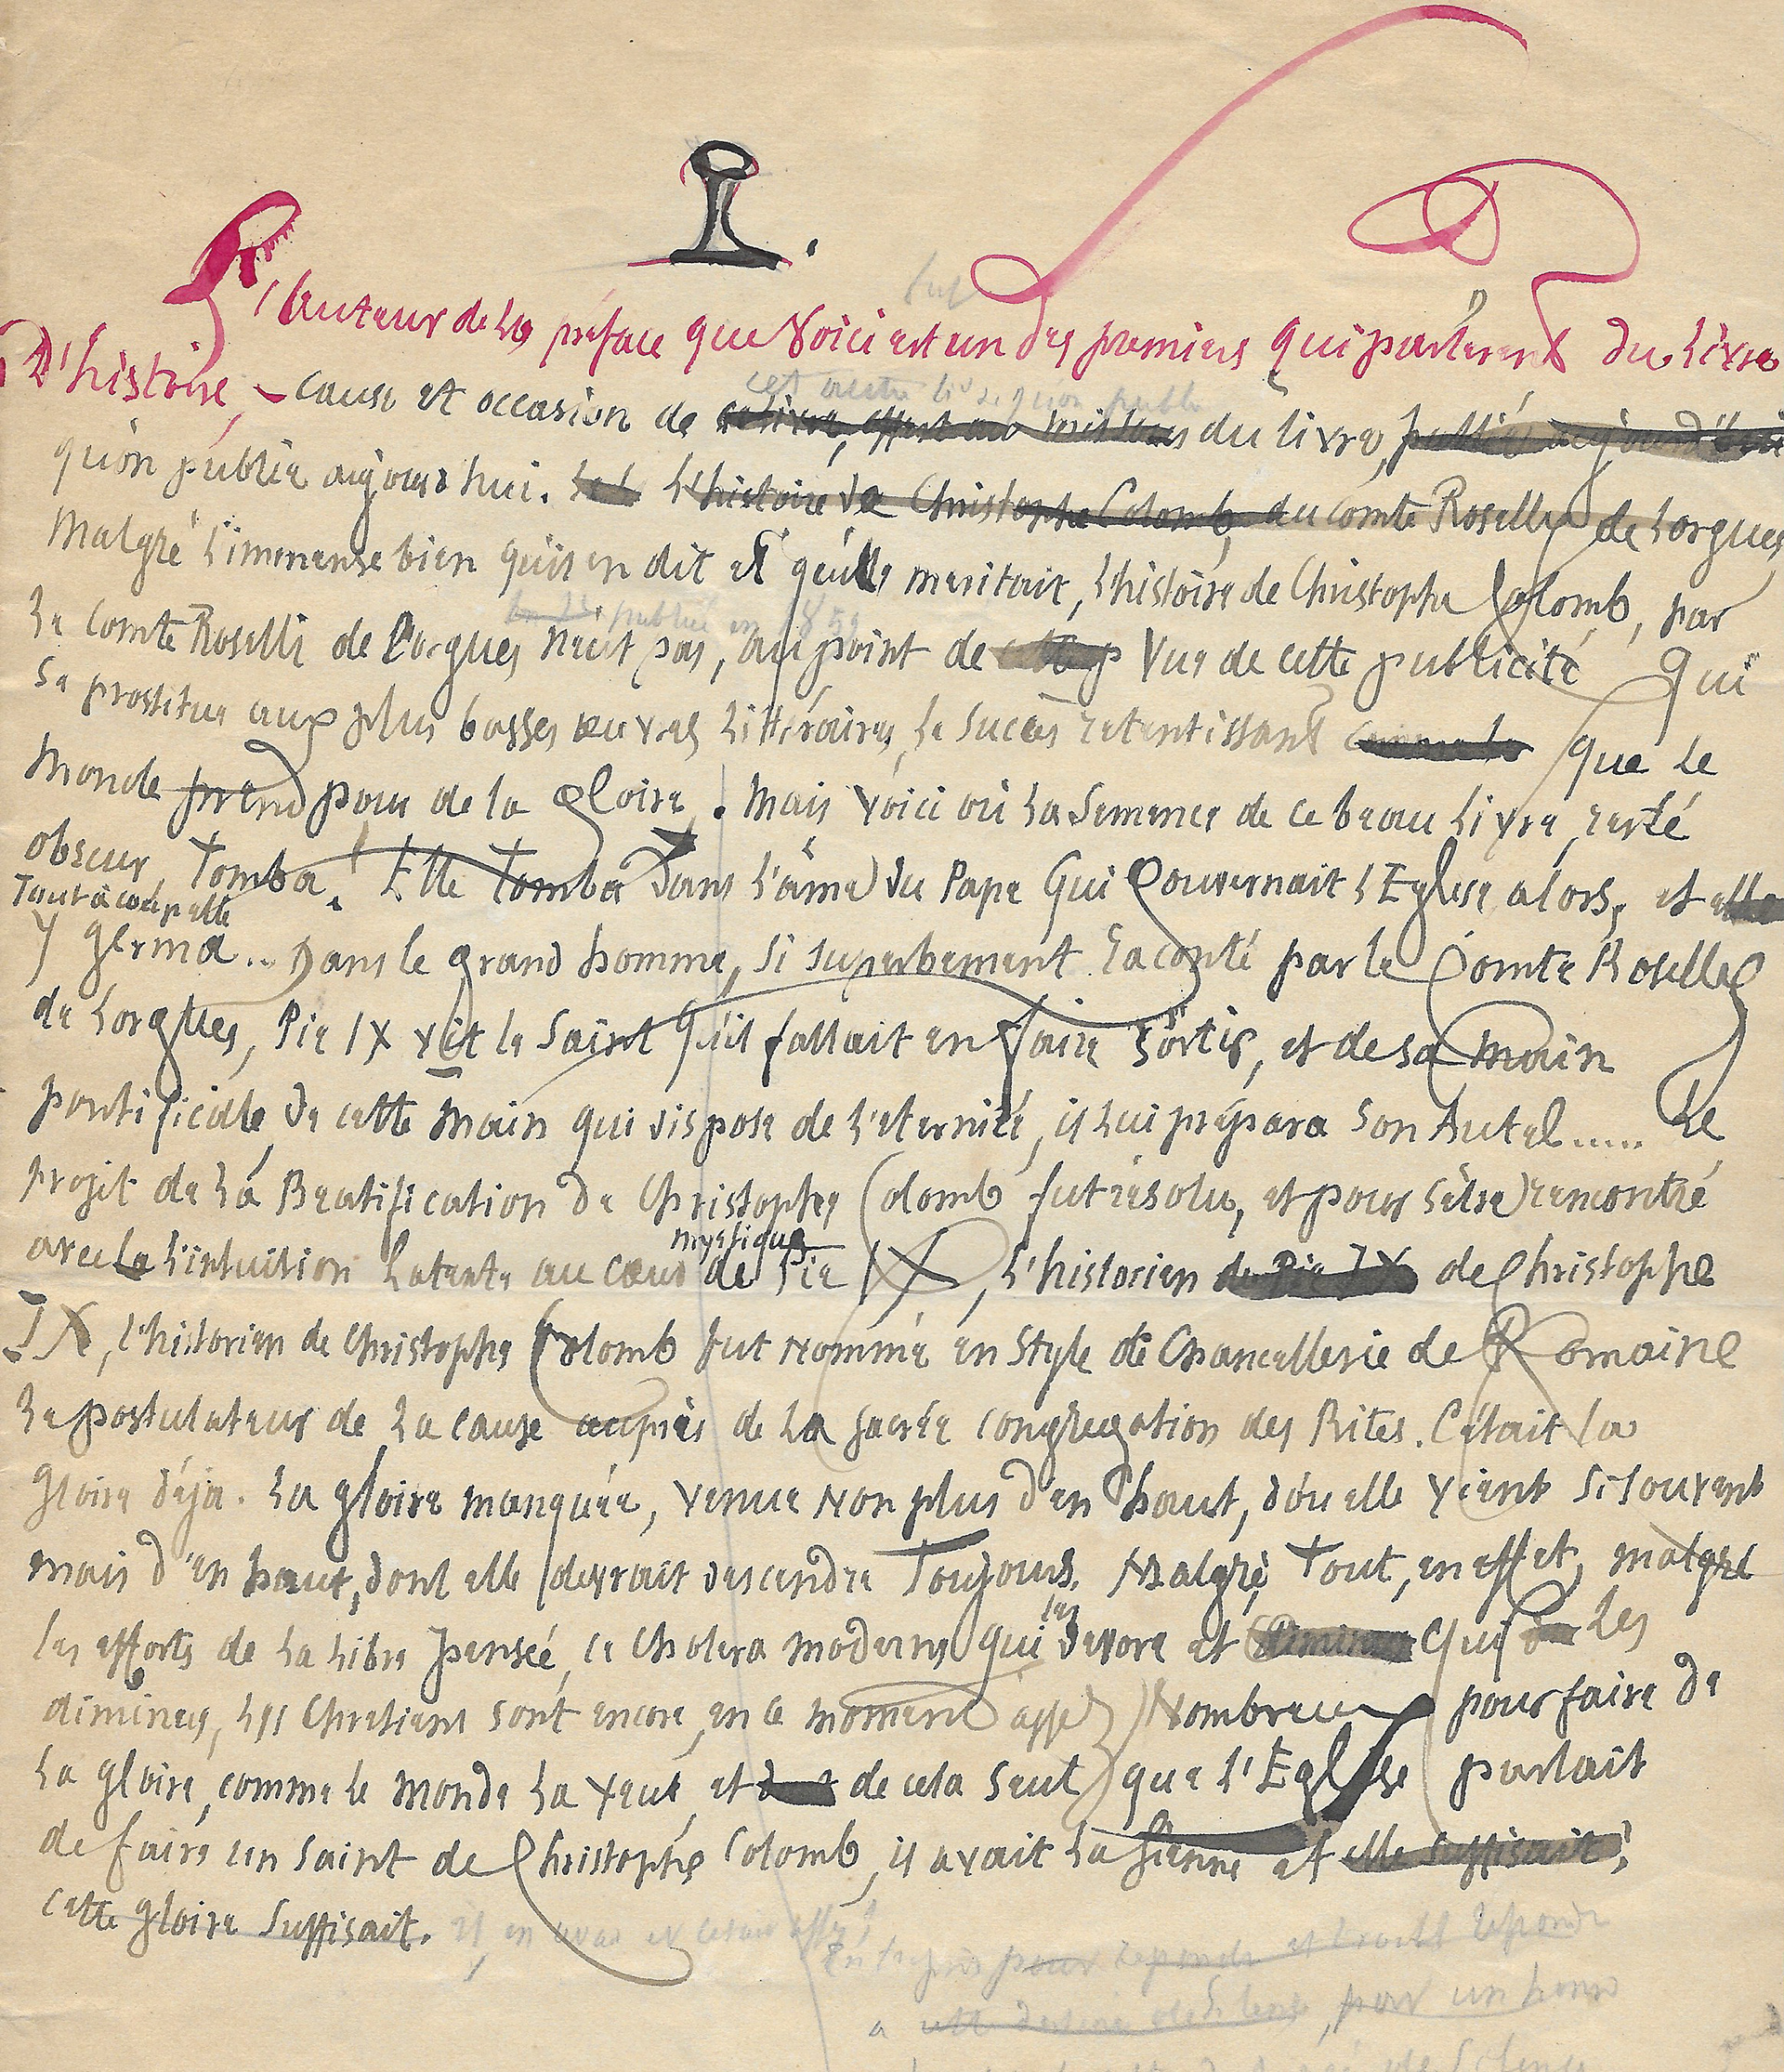 I.
L'Auteur de la préface que voici est un des premiers qui parlèrent du livre
D'histoire, – cause et occasion de ce livre, offert au du livre, publié aujourd'hui
cet autre livre qu'on publie
qu'on publie aujourd'hui. L'histoire de Christophe Colomb, du comte Roselly de Lorgues
Malgré l'immense bien qu'il en dit et qu'elle meritait, l'histoire de Christophe Colomb, par
publiée en
le Comte Roselli de Lorgues n'eut pas, au point de vue de cette publicité qui
se prostitue aux plus basses œuvres littéraires, le succès retentissant que le
monde prend pour de la gloire. Mais voici où la semence de ce beau livre, resté
obscur, tomba! Elle tomba dans l'âme du Pape qui gouvernait l'Eglise alors, et elle
Tout à coup elle
y germa... Dans le grand homme, si superbement raconté par le Comte Roselly
de Lorgues, Pie IX vit le Saint qu'il fallait en faire sortir, et de sa main
pontificale, de cette main qui dispose de l'eternité, il lui prépara son Autel..... Le
projet de la Beatification de Christophe Colomb fut résolu, et pour s'être rencontré
mystique
avec l'intuition latente au cœur de Pie IX, l'historien de Pie IX de Christophe
IX, l'historien de Christophe Colomb fut nommé en style de Chancellerie de Romaine
le postulateur de la cause auprès de la sacrée congregation des Rites. C'était la
gloire déja. La gloire manquée, venue non plus d'en haut, d'où elle vient si souvent
mais d'en haut, dont elle devrait descendre Toujours. Malgré Tout, en effet, malgré
les
les efforts de la libre pensée, ce cholera moderne qui devore et qui les
diminue, les Chretiens sont encore, en ce moment assez nombreux pour faire de
la gloire, comme le monde la veut, et de cela seul que l'Eglise parlait
de faire un saint de Christophe Colomb, il avait la sienne et elle suffisait!
cette gloire suffisait. il en avait et c'etait assez!
pour repondre et repond
a cette de silence, pour un homme